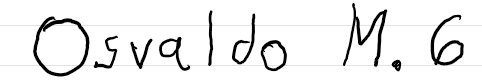 Osvaldo M. G